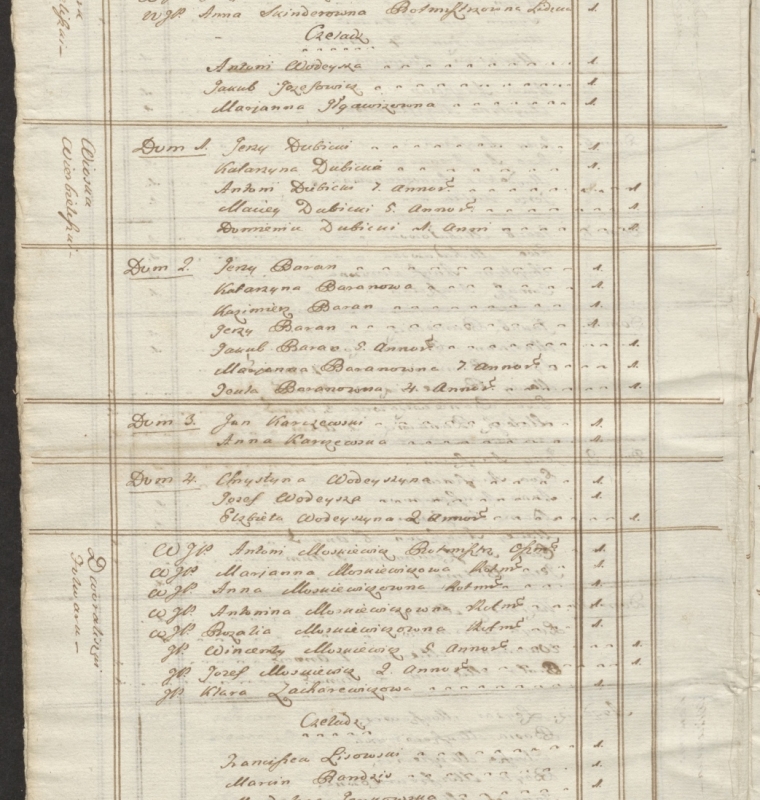 WJP. Anna Skinderowna Rotmistrzowna Lidzka 1.
Czeladz
Antoni Wodeyza 1.
Jakub Jozefowicz 1.
Marjanna 1.
Wioska
Dom 1. Jerzy Dubicki 1.
Katarzyna Dubicka 1.
Antoni Dubicki 7. Annor. 1.
Maciey Dubicki 5. Annor. 1.
Dominik Dubicki 1. Anni 1.
Dom 2. Jerzy Baran 1.
Katarzyna Baranowa 1.
Kazimierz Baran 1.
Jerzy Baran 1.
Jakub Baran 5. Annor. 1.
Marjanna Baranowna 7. Annor. 1.
Baranowna 4. Annor. 1.
Dom 3. Jan Karczewski 1.
Anna Karczewska 1.
Dom 4. Chrystyna Wodeyszyna 1.
Jozef Wodeysza 1.
Elzbieta Wodeyszyna 2 Annor. 1.
WJP. Antoni Moskiewicz Rotmistrz Oszm. 1.
WJP. Marjanna Moskiewiczowa Rotm. 1.
WJP. Anna Moskiewiczowna Rotm. 1.
WJP. Antonina Moskiewiczowna Rotm. 1.
WJP. Rozalia Moskiewiczowna Rotm. 1.
JP. Wincenty Moskiewicz 5. Annor. 1.
JP. Jozef Moskiewicz 2. Annor. 1.
JP. Klara Zacharewiczowa 1.
Czeladz
Franciszka Lisowski 1.
Marcin 1.